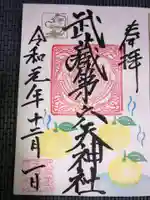 奉拝
武蔵第六天神社
令和元年十二月一日